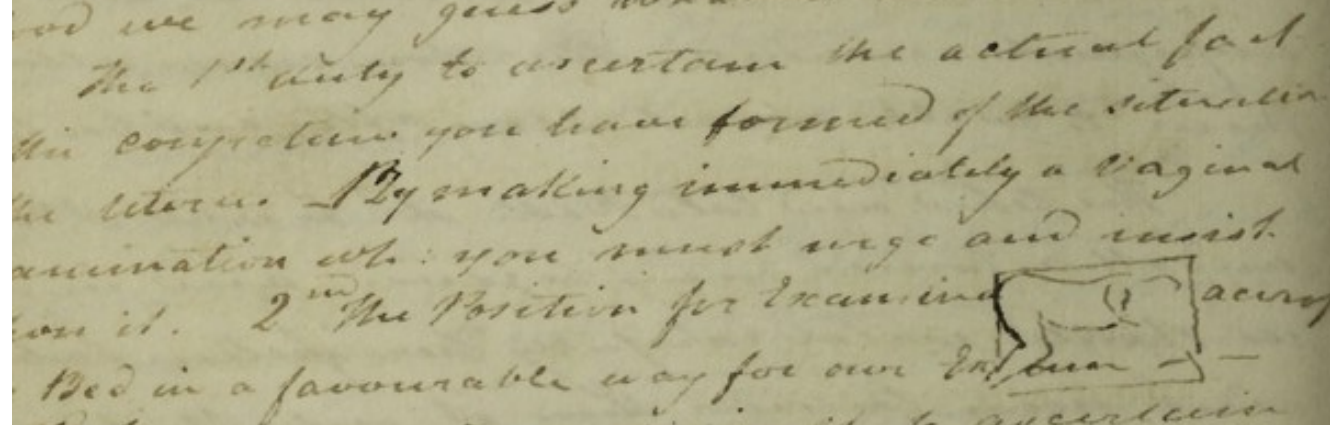 we may guess
The 1st duty to ascertain the actual fact
conjecture you have formed of the situation
the uterus. By making immediately a vaginal
amination wh: you must urge and insist
on it. 2nd The Position for Examin across
Bed in a favourable way for our
to ascertain